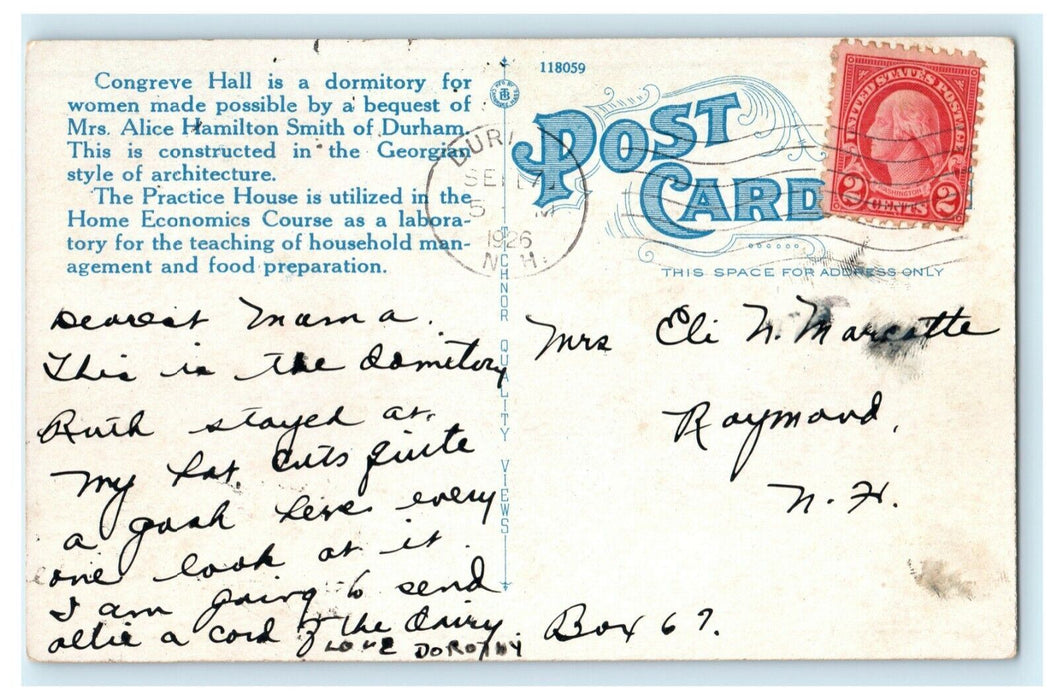 Congreve Hall is a dormitory for
women made possible by a bequest of
Mrs. Alice Hamilton Smith of Durham.
This is constructed in the Georgian
style of architecture.
The Practice House is utilized in the
Home Economics Course as a labora-
tory for the teaching of household man-
agement and food preparation.
118059
POST
CARD
THIS SPACE FOR ADDRESS ONLY
UNITED STATES POSTAGE
WASHINGTON
2 CENTS 2
DUR
SE
5
1926
N.H.
TICHNOR QUALITY VIEWS
Dearest Mama.
This is the domitory
Ruth stayed at.
My hat. cuts quite
a gash here every
one look at it.
I am going to send
allie a card of the dairy
LOVE DOROTHY
Mrs Eli N. Marcotte
Raymond,
N.H.
Box 67.